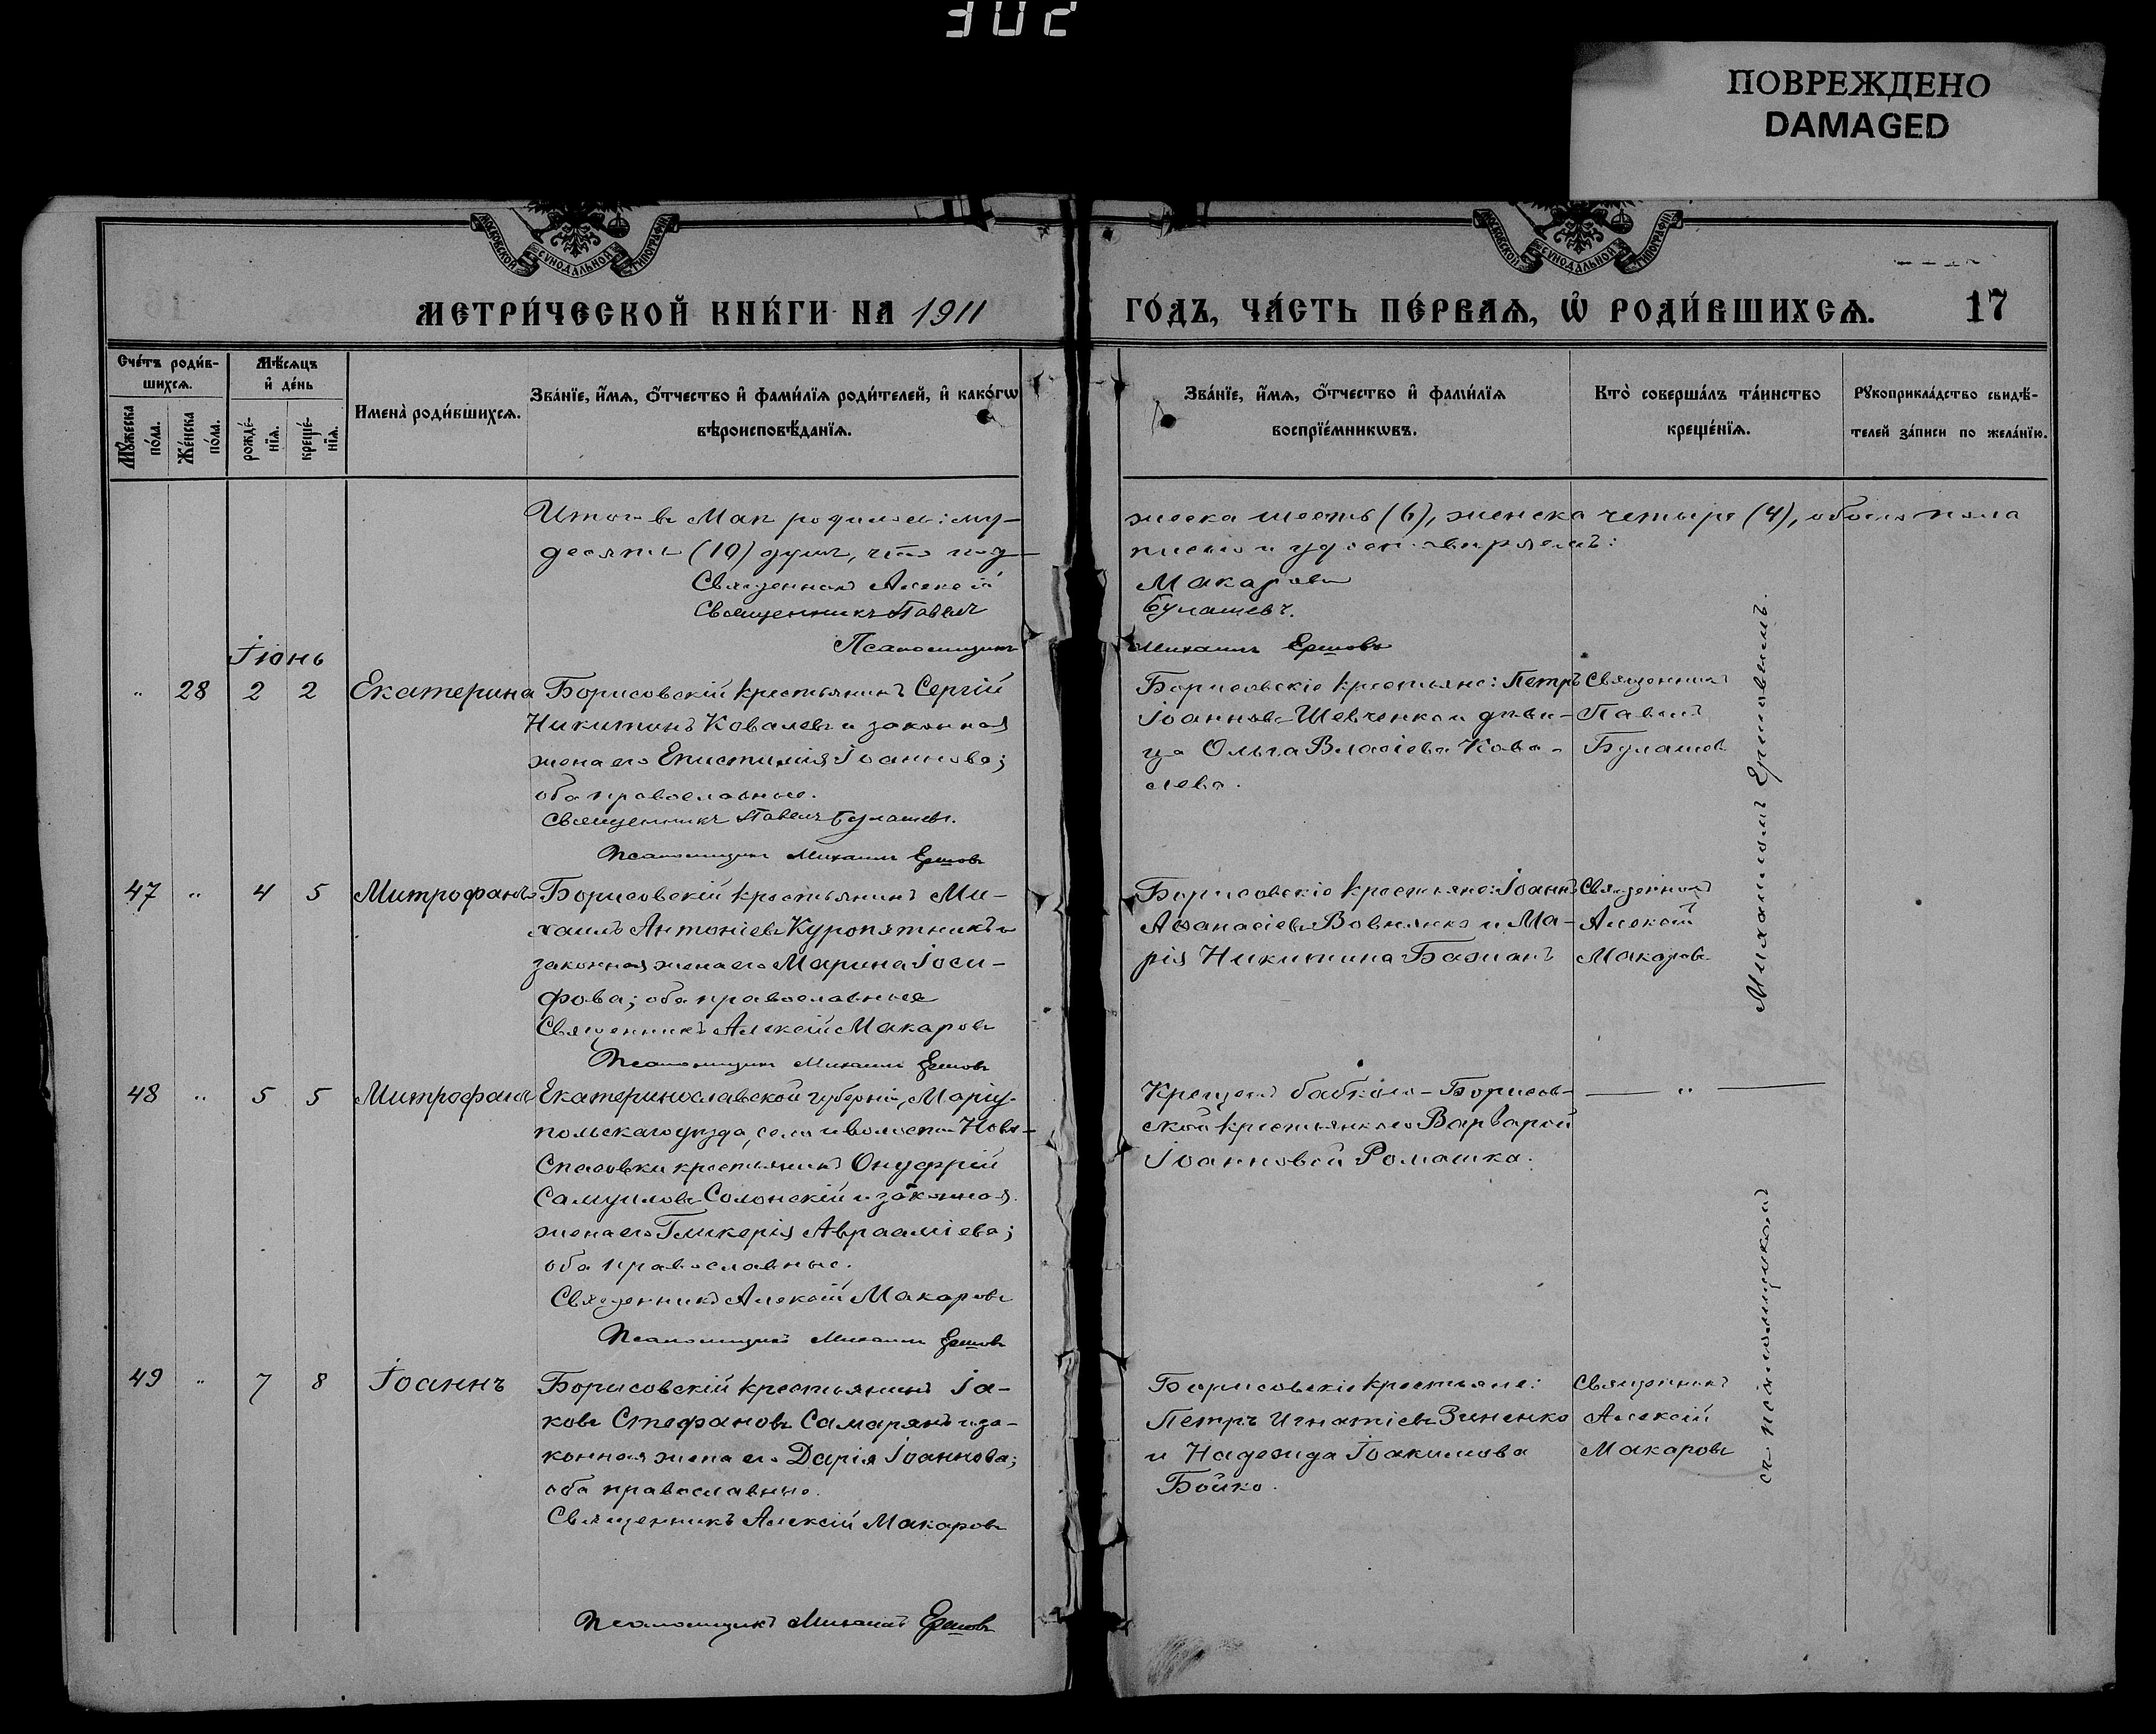 302
ПОВРЕЖДЕНО
DAMAGED
МОСКОВСКОЙ СѴНОДАЛЬНОЙ ТИПОГРАФІИ
МОСКОВСКОЙ СѴНОДАЛЬНОЙ ТИПОГРАФІИ
МЕТРИ́ЧЕСКОЙ КНИ́ГИ НА 1911
ГО́ДЪ, ЧА́СТЬ ПЕ́РВАѦ, Ѡ҆ РОДИ́ВШИХСѦ. 17
Сче́тъ роди́в-
шихсѧ.
Мꙋ́жеска по́ла.
Же́нска по́ла.
Мѣ́сѧцъ
и҆ де́нь
рожде́-нїѧ.
креще́-нїѧ.
Имена̀ роди́вшихсѧ.
Зва́нїе, и҆́мѧ, ѻ҆́тчество и҆ фами́лїѧ роди́телей, и҆ како́гѡ
вѣроисповѣ́данїѧ.
Зва́нїе, и҆́мѧ, ѻ҆́тчество и҆ фами́лїѧ
воспрїе́мникѡвъ.
Кто̀ соверша́лъ та́инство
креще́нїѧ.
Рꙋкоприкла́дство свидѣ́-
телей за́писи по жела́нїю.
Итого въ Маѣ родилось: му-
жеска шесть (6), женска четыре (4), обоего пола
десять (10) душъ, что под-
писью и удостовѣряемъ:
Священникъ Алексій
Макаровъ
Священникъ Павелъ
Булашевъ.
Псаломщикъ
Михаилъ Ершовъ
Іюнь
" 28 2 2 Екатерина
Борисовскій крестьянинъ Сергій
Никитинъ Ковалевъ и законная
жена его Епистимія Іоаннова;
оба православные.
Священникъ Павелъ Булашевъ.
Псаломщикъ Михаилъ Ершовъ
Борисовскіе крестьяне: Петръ
Іоанновъ Шевченко и дѣви-
ца Ольга Власіева Кова-
лева.
Священникъ
Павелъ
Булашевъ
47 " 4 5 Митрофанъ
Борисовскій крестьянинъ Ми-
хаилъ Антоніевъ Куропятникъ и
законная жена его Марина Іоси-
фова; оба православные
Священникъ Алексій Макаровъ
Псаломщикъ Михаилъ Ершовъ
Борисовскіе крестьяне: Іоаннъ
Аѳанасіевъ Вовнянко и Ма-
рія Никитина Бажанъ
Священникъ
Алексій
Макаровъ
48 " 5 5 Митрофанъ
Екатеринославской губерніи, Маріу-
польскаго уѣзда, села и волости Ново-
Спасовки крестьянинъ Онуфрій
Самуиловъ Солонскій и законная
жена его Гликерія Авраамiева;
оба православные.
Священникъ Алексій Макаровъ
Псаломщикъ Михаилъ Ершовъ
Крещенъ бабкою - Борисов-
ской крестьянкою Варварой
Іоанновой Ромашко.
— " —
49 " 7 8 Іоаннъ
Борисовскій крестьянинъ Іа-
ковъ Стефановъ Самарянъ и за-
конная жена его Дарія Іоаннова;
оба православные.
Священникъ Алексій Макаровъ
Псаломщикъ Михаилъ Ершовъ
Борисовскіе крестьяне:
Петръ Игнатіевъ Зиненко
и Надежда Іоакимова
Бойко.
Священникъ
Алексій
Макаровъ
съ псаломщикомъ
Михаиломъ Ершовымъ.